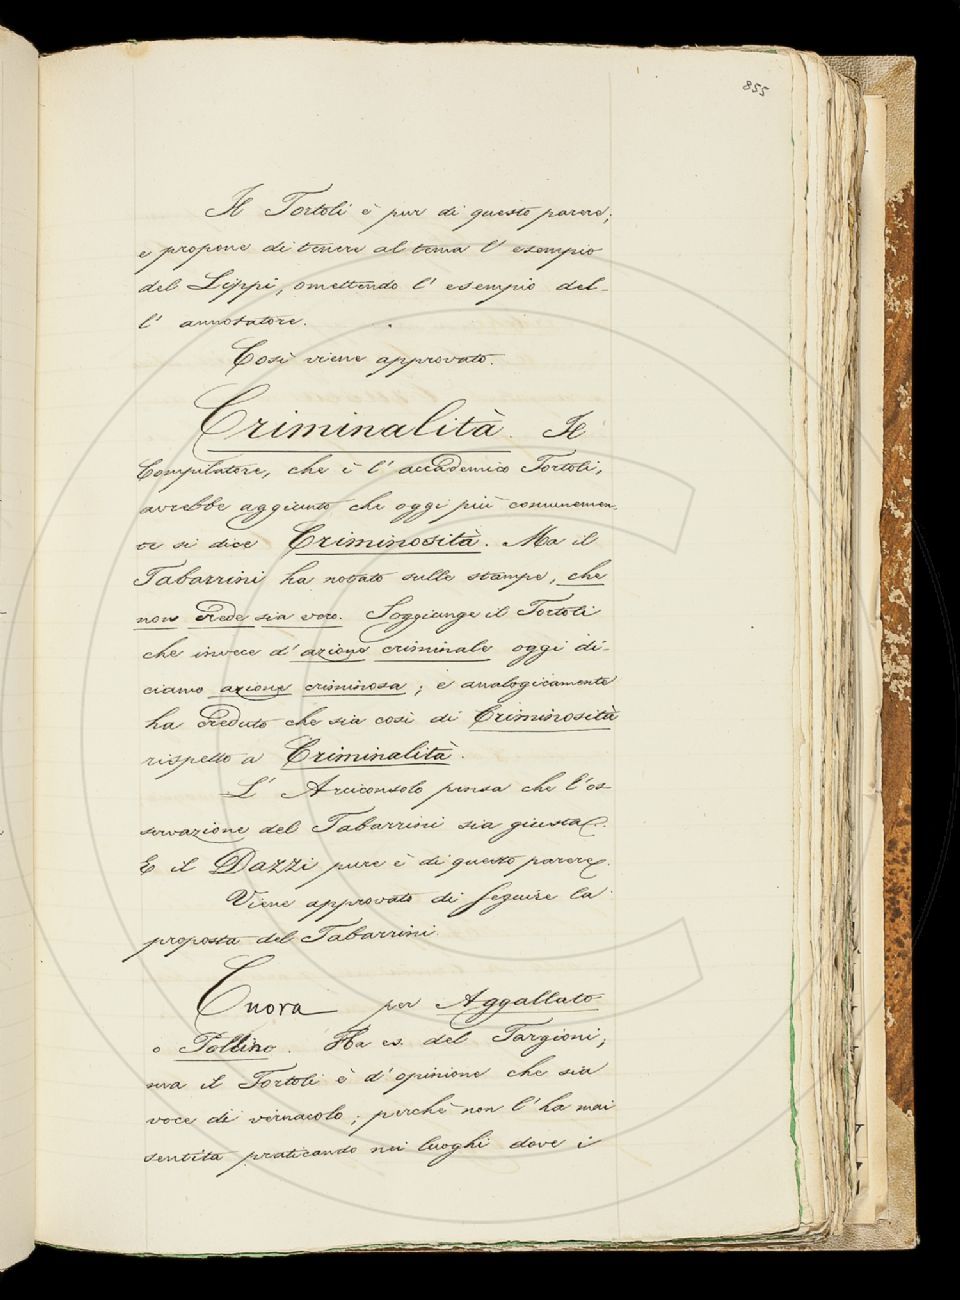 855
Il Tortoli è pur di questo parere;
e propone di tenere al tema l'esempio
del Lippi, omettendo l'esempio del-
l'annotatore.
Così viene approvato.
Criminalità. Il
Compilatore, che è l'accademico Tortoli,
avrebbe aggiunto che oggi più comunemen-
te si dice Criminosità. Ma il
Tabarrini ha notato sulle stampe, che
non crede sia vero. Soggiunge il Tortoli
che invece d'azione criminale oggi di-
ciamo azione criminosa; e analogicamente
ha creduto che sia così di Criminosità
rispetto a Criminalità.
L'Arciconsolo pensa che l'os
servazione del Tabarrini sia giusta.
E il Dazzi pure è di questo parere.
Viene approvato di seguire la
proposta del Tabarrini.
Cuora per Aggallato
o Pollino. Ha es. del Targioni;
ma il Tortoli è d'opinione che sia
voce di vernacolo; perchè non l'ha mai
sentita praticando nei luoghi dove i